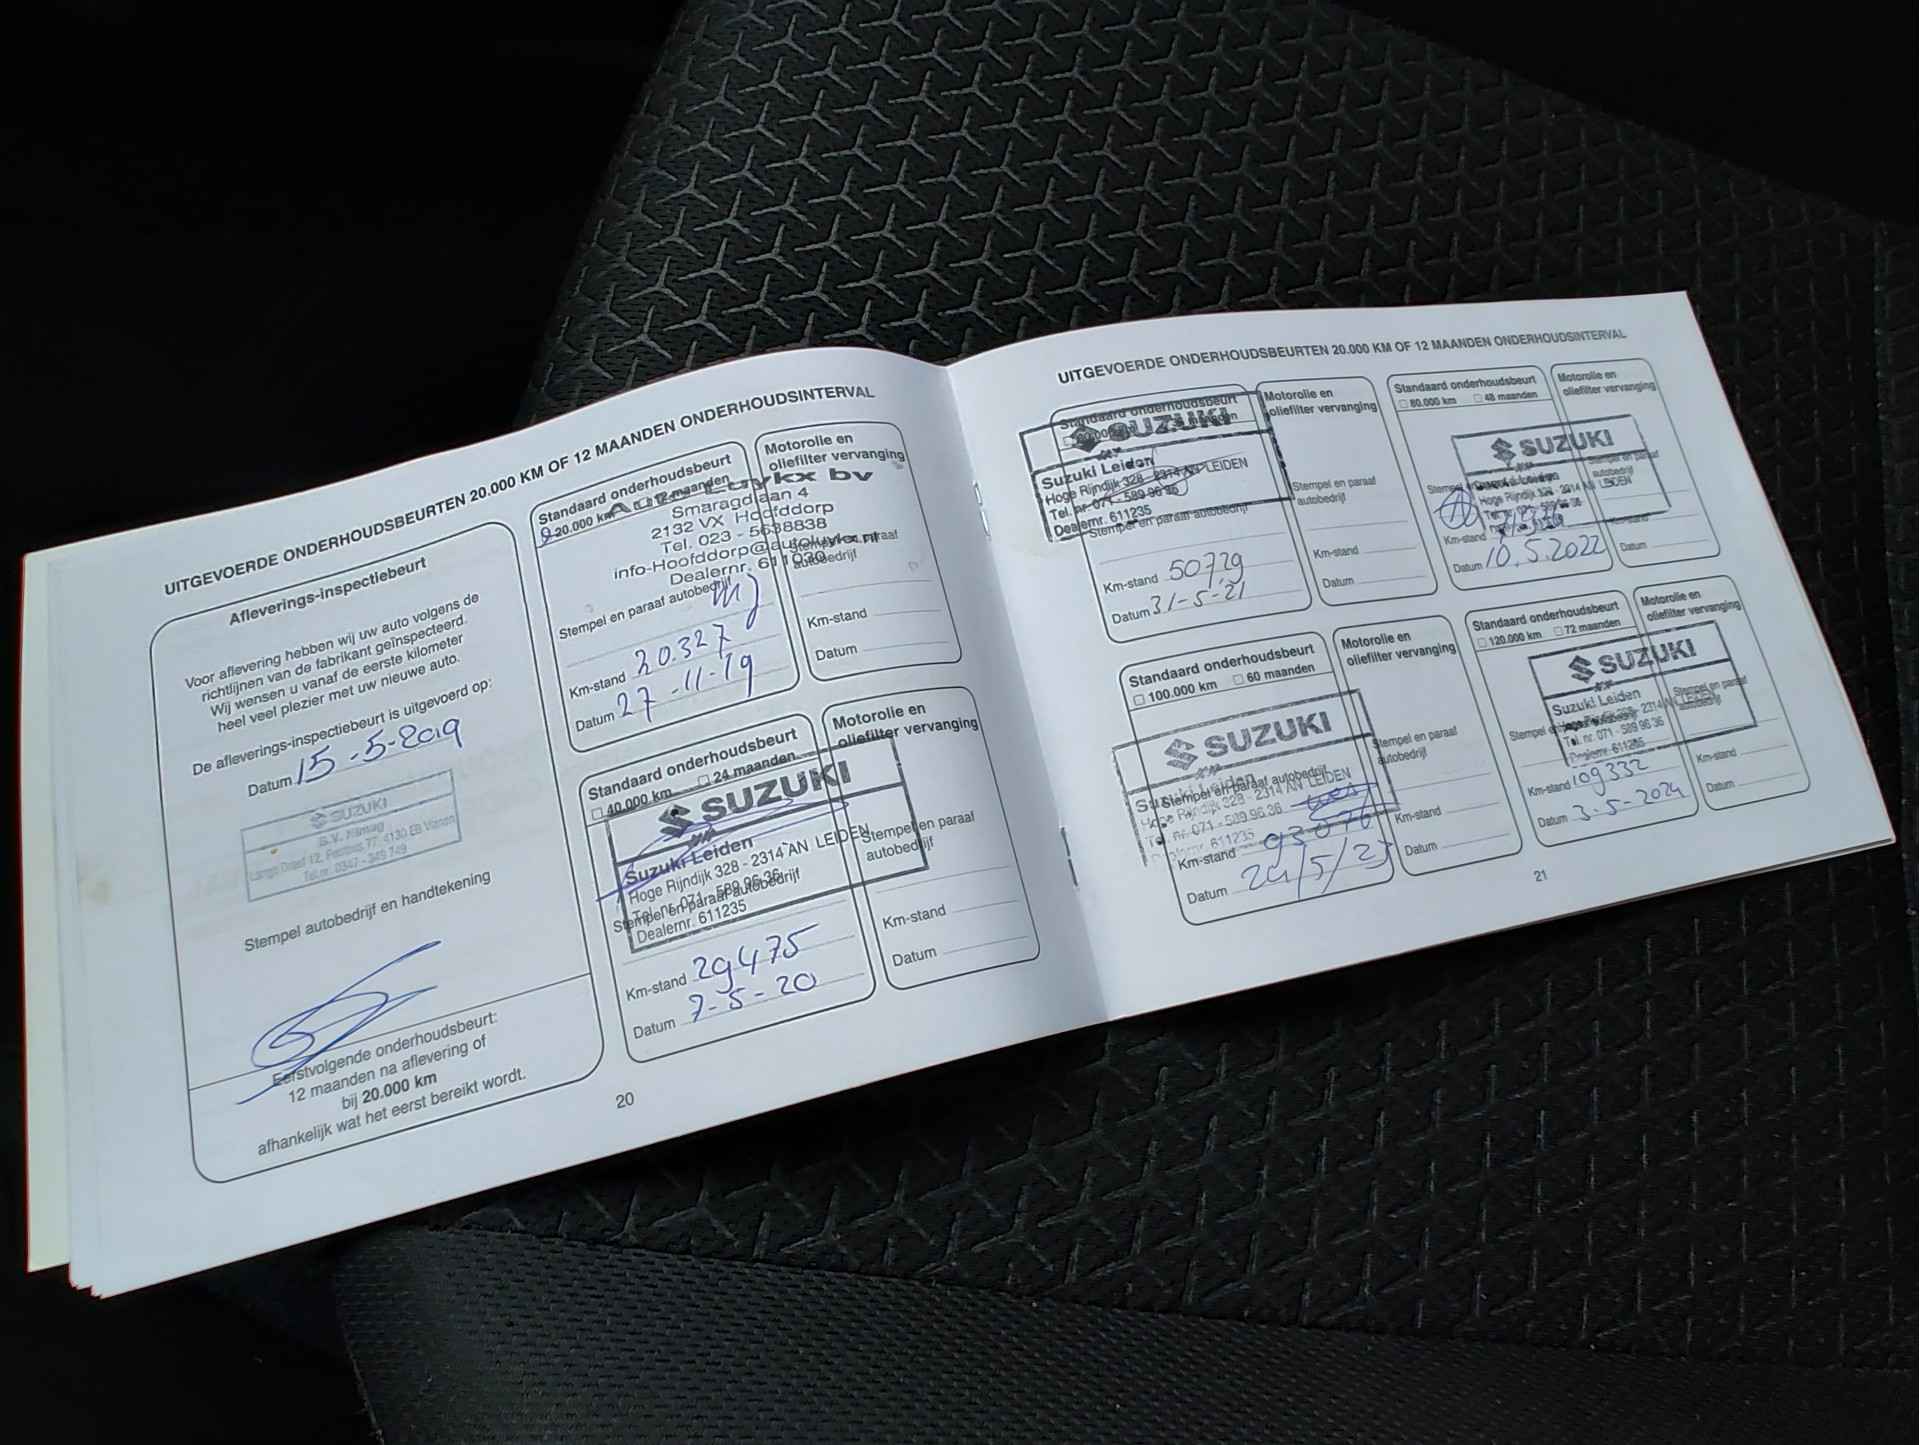 UITGEVOERDE ONDERHOUDSBEURTEN 20.000 KM OF 12 MAANDEN ONDERHOUDSINTERVAL
Afleverings-inspectiebeurt
Voor aflevering hebben wij uw auto volgens de
richtlijnen van de fabrikant geïnspecteerd.
Wij wensen u vanaf de eerste kilometer
heel veel plezier met uw nieuwe auto.
De afleverings-inspectiebeurt is uitgevoerd op:
Datum 15-5-2019
SUZUKI
Tel.nr. 0347 - 349 749
Stempel autobedrijf en handtekening
Eerstvolgende onderhoudsbeurt:
12 maanden na aflevering of
bij 20.000 km
afhankelijk wat het eerst bereikt wordt.
Standaard onderhoudsbeurt
20.000 km 12 maanden
Luykx bv
Smaragdlaan 4
2132 VX Hoofddorp
Tel. 023 - 5638838
info-Hoofddorp@autoluykx.nl
Dealernr. 611030
Stempel en paraaf autobedrijf
Km-stand 20.327
Datum 27-11-19
Motorolie en
oliefilter vervanging
Stempel en paraaf
autobedrijf
Km-stand
Datum
Standaard onderhoudsbeurt
40.000 km 24 maanden
SUZUKI
Suzuki Leiden
Hoge Rijndijk 328 - 2314 AN LEIDEN
Tel. nr. 071 - 589 96 36
Dealernr. 611235
Stempel en paraaf autobedrijf
Km-stand 29475
Datum 7-5-20
Motorolie en
oliefilter vervanging
Stempel en paraaf
autobedrijf
Km-stand
Datum
20
UITGEVOERDE ONDERHOUDSBEURTEN 20.000 KM OF 12 MAANDEN ONDERHOUDSINTERVAL
Standaard onderhoudsbeurt
SUZUKI
Suzuki Leiden
Hoge Rijndijk 328 - 2314 AN LEIDEN
Tel. nr. 071 - 589 96 36
Dealernr. 611235
Stempel en paraaf autobedrijf
Km-stand 50729
Datum 31-5-21
Motorolie en
oliefilter vervanging
Stempel en paraaf
autobedrijf
Km-stand
Datum
Standaard onderhoudsbeurt
80.000 km 48 maanden
SUZUKI
Hoge Rijndijk 328 - 2314 AN LEIDEN
Km-stand
Datum 10.5.2022
Motorolie en
oliefilter vervanging
Stempel en paraaf
autobedrijf
Km-stand
Datum
Standaard onderhoudsbeurt
100.000 km 60 maanden
SUZUKI
Suzuki Leiden
Hoge Rijndijk 328 - 2314 AN LEIDEN
Tel. nr. 071 - 589 96 36
Dealernr. 611235
Stempel en paraaf autobedrijf
Km-stand 93076
Datum 24/5/23
Motorolie en
oliefilter vervanging
Stempel en paraaf
autobedrijf
Km-stand
Datum
Standaard onderhoudsbeurt
120.000 km 72 maanden
SUZUKI
Suzuki Leiden
Hoge Rijndijk 328 - 2314 AN LEIDEN
Tel. nr. 071 - 589 96 36
Dealernr. 611235
Km-stand 109332
Datum 3-5-2024
Motorolie en
oliefilter vervanging
Stempel en paraaf
autobedrijf
Km-stand
Datum
21